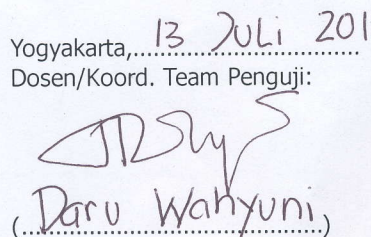 Yogyakarta, 13 Juli 201
Dosen/Koord. Team Penguji:
(Daru Wahyuni)